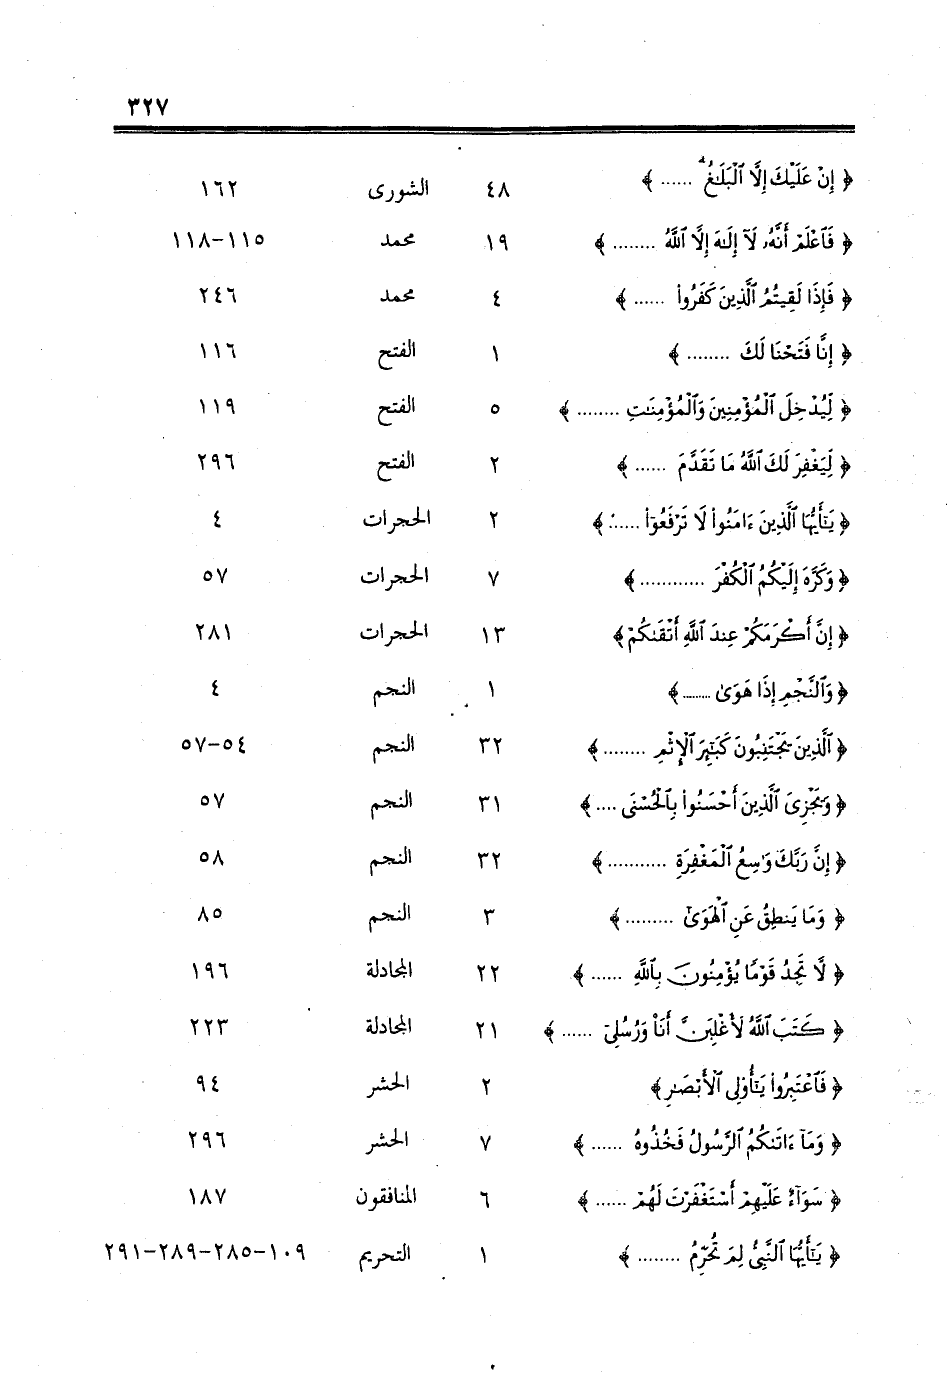 ٣٢٧
﴿ إِنْ عَلَيْكَ إِلَّا ٱلْبَلَـٰغُ ...... ﴾ ٤٨ الشورى ١٦٢
﴿ فَٱعْلَمْ أَنَّهُۥ لَآ إِلَـٰهَ إِلَّا ٱللَّهُ ........ ﴾ ١٩ محمد ١١٥-١١٨
﴿ فَإِذَا لَقِيتُمُ ٱلَّذِينَ كَفَرُوا۟ ...... ﴾ ٤ محمد ٢٤٦
﴿ إِنَّا فَتَحْنَا لَكَ ........ ﴾ ١ الفتح ١١٦
﴿ لِّيُدْخِلَ ٱلْمُؤْمِنِينَ وَٱلْمُؤْمِنَـٰتِ ........ ﴾ ٥ الفتح ١١٩
﴿ لِّيَغْفِرَ لَكَ ٱللَّهُ مَا تَقَدَّمَ ...... ﴾ ٢ الفتح ٢٩٦
﴿ يَـٰٓأَيُّهَا ٱلَّذِينَ ءَامَنُوا۟ لَا تَرْفَعُوٓا۟ ...... ﴾ ٢ الحجرات ٤
﴿ وَكَرَّهَ إِلَيْكُمُ ٱلْكُفْرَ ............ ﴾ ٧ الحجرات ٥٧
﴿ إِنَّ أَكْرَمَكُمْ عِندَ ٱللَّهِ أَتْقَىٰكُمْ ﴾ ١٣ الحجرات ٢٨١
﴿ وَٱلنَّجْمِ إِذَا هَوَىٰ ......... ﴾ ١ النجم ٤
﴿ ٱلَّذِينَ يَجْتَنِبُونَ كَبَـٰٓئِرَ ٱلْإِثْمِ ........ ﴾ ٣٢ النجم ٥٤-٥٧
﴿ وَيَجْزِىَ ٱلَّذِينَ أَحْسَنُوا۟ بِٱلْحُسْنَى .... ﴾ ٣١ النجم ٥٧
﴿ إِنَّ رَبَّكَ وَٰسِعُ ٱلْمَغْفِرَةِ ........... ﴾ ٣٢ النجم ٥٨
﴿ وَمَا يَنطِقُ عَنِ ٱلْهَوَىٰٓ ......... ﴾ ٣ النجم ٨٥
﴿ لَّا تَجِدُ قَوْمًا يُؤْمِنُونَ بِٱللَّهِ ...... ﴾ ٢٢ المجادلة ١٩٦
﴿ كَتَبَ ٱللَّهُ لَأَغْلِبَنَّ أَنَا۠ وَرُسُلِىٓ ...... ﴾ ٢١ المجادلة ٢٢٣
﴿ فَٱعْتَبِرُوا۟ يَـٰٓأُو۟لِى ٱلْأَبْصَـٰرِ ﴾ ٢ الحشر ٩٤
﴿ وَمَآ ءَاتَىٰكُمُ ٱلرَّسُولُ فَخُذُوهُ ...... ﴾ ٧ الحشر ٢٩٦
﴿ سَوَآءٌ عَلَيْهِمْ أَسْتَغْفَرْتَ لَهُمْ ...... ﴾ ٦ المنافقون ١٨٧
﴿ يَـٰٓأَيُّهَا ٱلنَّبِىُّ لِمَ تُحَرِّمُ ........ ﴾ ١ التحريم ١٠٩-٢٨٥-٢٨٩-٢٩١